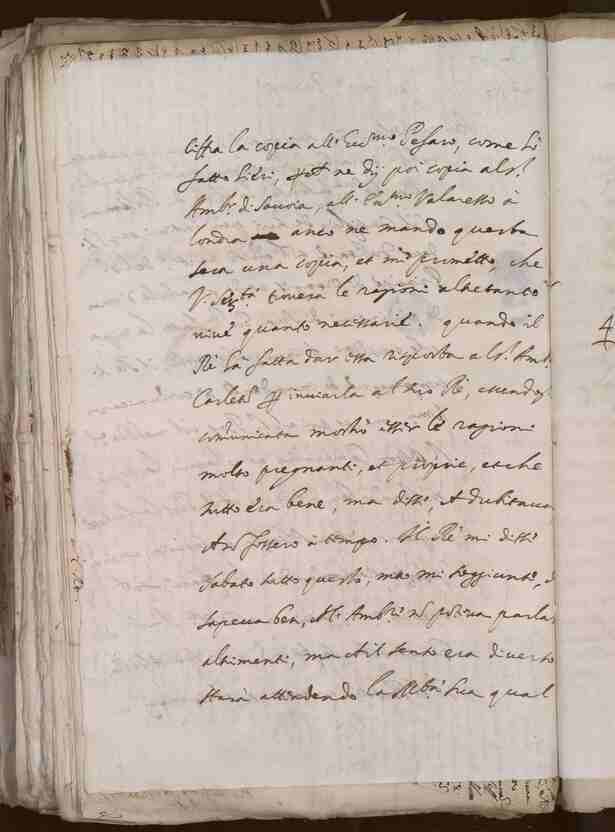 ciffra la copia all' Ecc.mo Pesaro, come hò
fatto hieri, et ne dij poi copia al s.r
Amb.r di Savoia, all' Ill.mo Valaresso à
londra anco ne mando questa
sera una copia, et mi prometto, che
V. Ser.tà troverà le ragioni altretanto
vive quanto necessarie. quando il
Rè hà fatta dar essa risposta al s.r Amb.
Carleton per inviarla al suo Rè, essendogli
communicata mostrò esser le ragioni
molto pregnanti, et proprie, et che
tutto era bene, ma disse, che dubitava
che non fossero à tempo. Il Rè mi disse
sabato tutto questo, ma mi soggiunse,
sapeva ben, che l'Amb.r non poteva parlar
altrimenti, ma che il senso era diverso
starà attendendo la Ser.tà sua qual
4